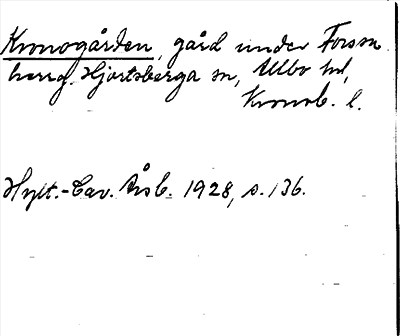 Kronogården, gård under Forsa
herrg. Hjortsberga sn, Allbo hd,
Kronob. l.
Hylt.-Cav. Årsb. 1928, s. 136.